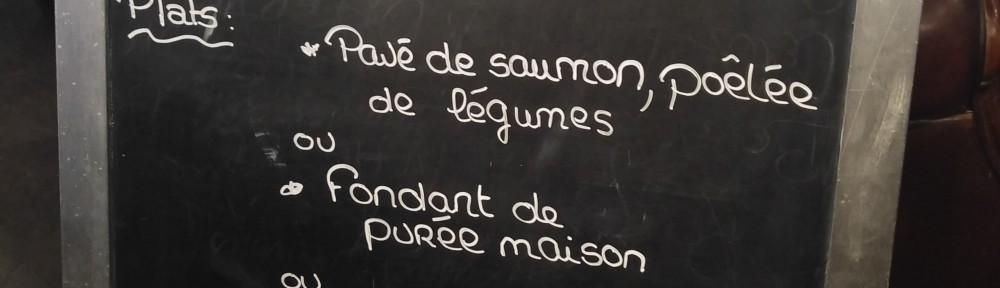 Plats:
* Pavé de saumon, poêlée
de légumes
ou
* Fondant de
purée maison
ou